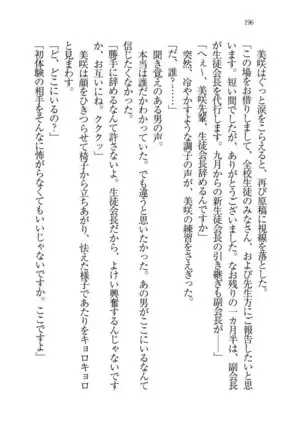 196
美咲はぐっと涙をこらえると、再び原稿に視線を落とした。
「この場をお借りしまして、全校生徒のみなさん、および先生方にご報告したいと思
います。短い間でしたが、ありがとうございました。なお残りの一カ月半は、副会長
が生徒会長を代行します。九月からの新生徒会長の引き継ぎも副会長が――」
「へぇ〜、美咲先輩、生徒会長辞めるんですか」
突然、冷やかすような調子の声が、美咲の練習をさえぎった。
「だ、誰……」
聞き覚えのある男の声。
本当は誰だかわかっていた。でも違うと思いたかった。あの男がここにいるなんて
信じたくなかった。
「勝手に辞めるなんて許さないよ。生徒会長だから、よけい興奮するんじゃないです
か、お互いにね。クククッ」
美咲は顔をひきつらせて椅子から立ちあがり、怯えた様子であたりをキョロキョロ
と見まわす。
「ど、どこにいるの?」
「初体験の相手をそんなに怖がらなくてもいいじゃないですか。ここですよ」